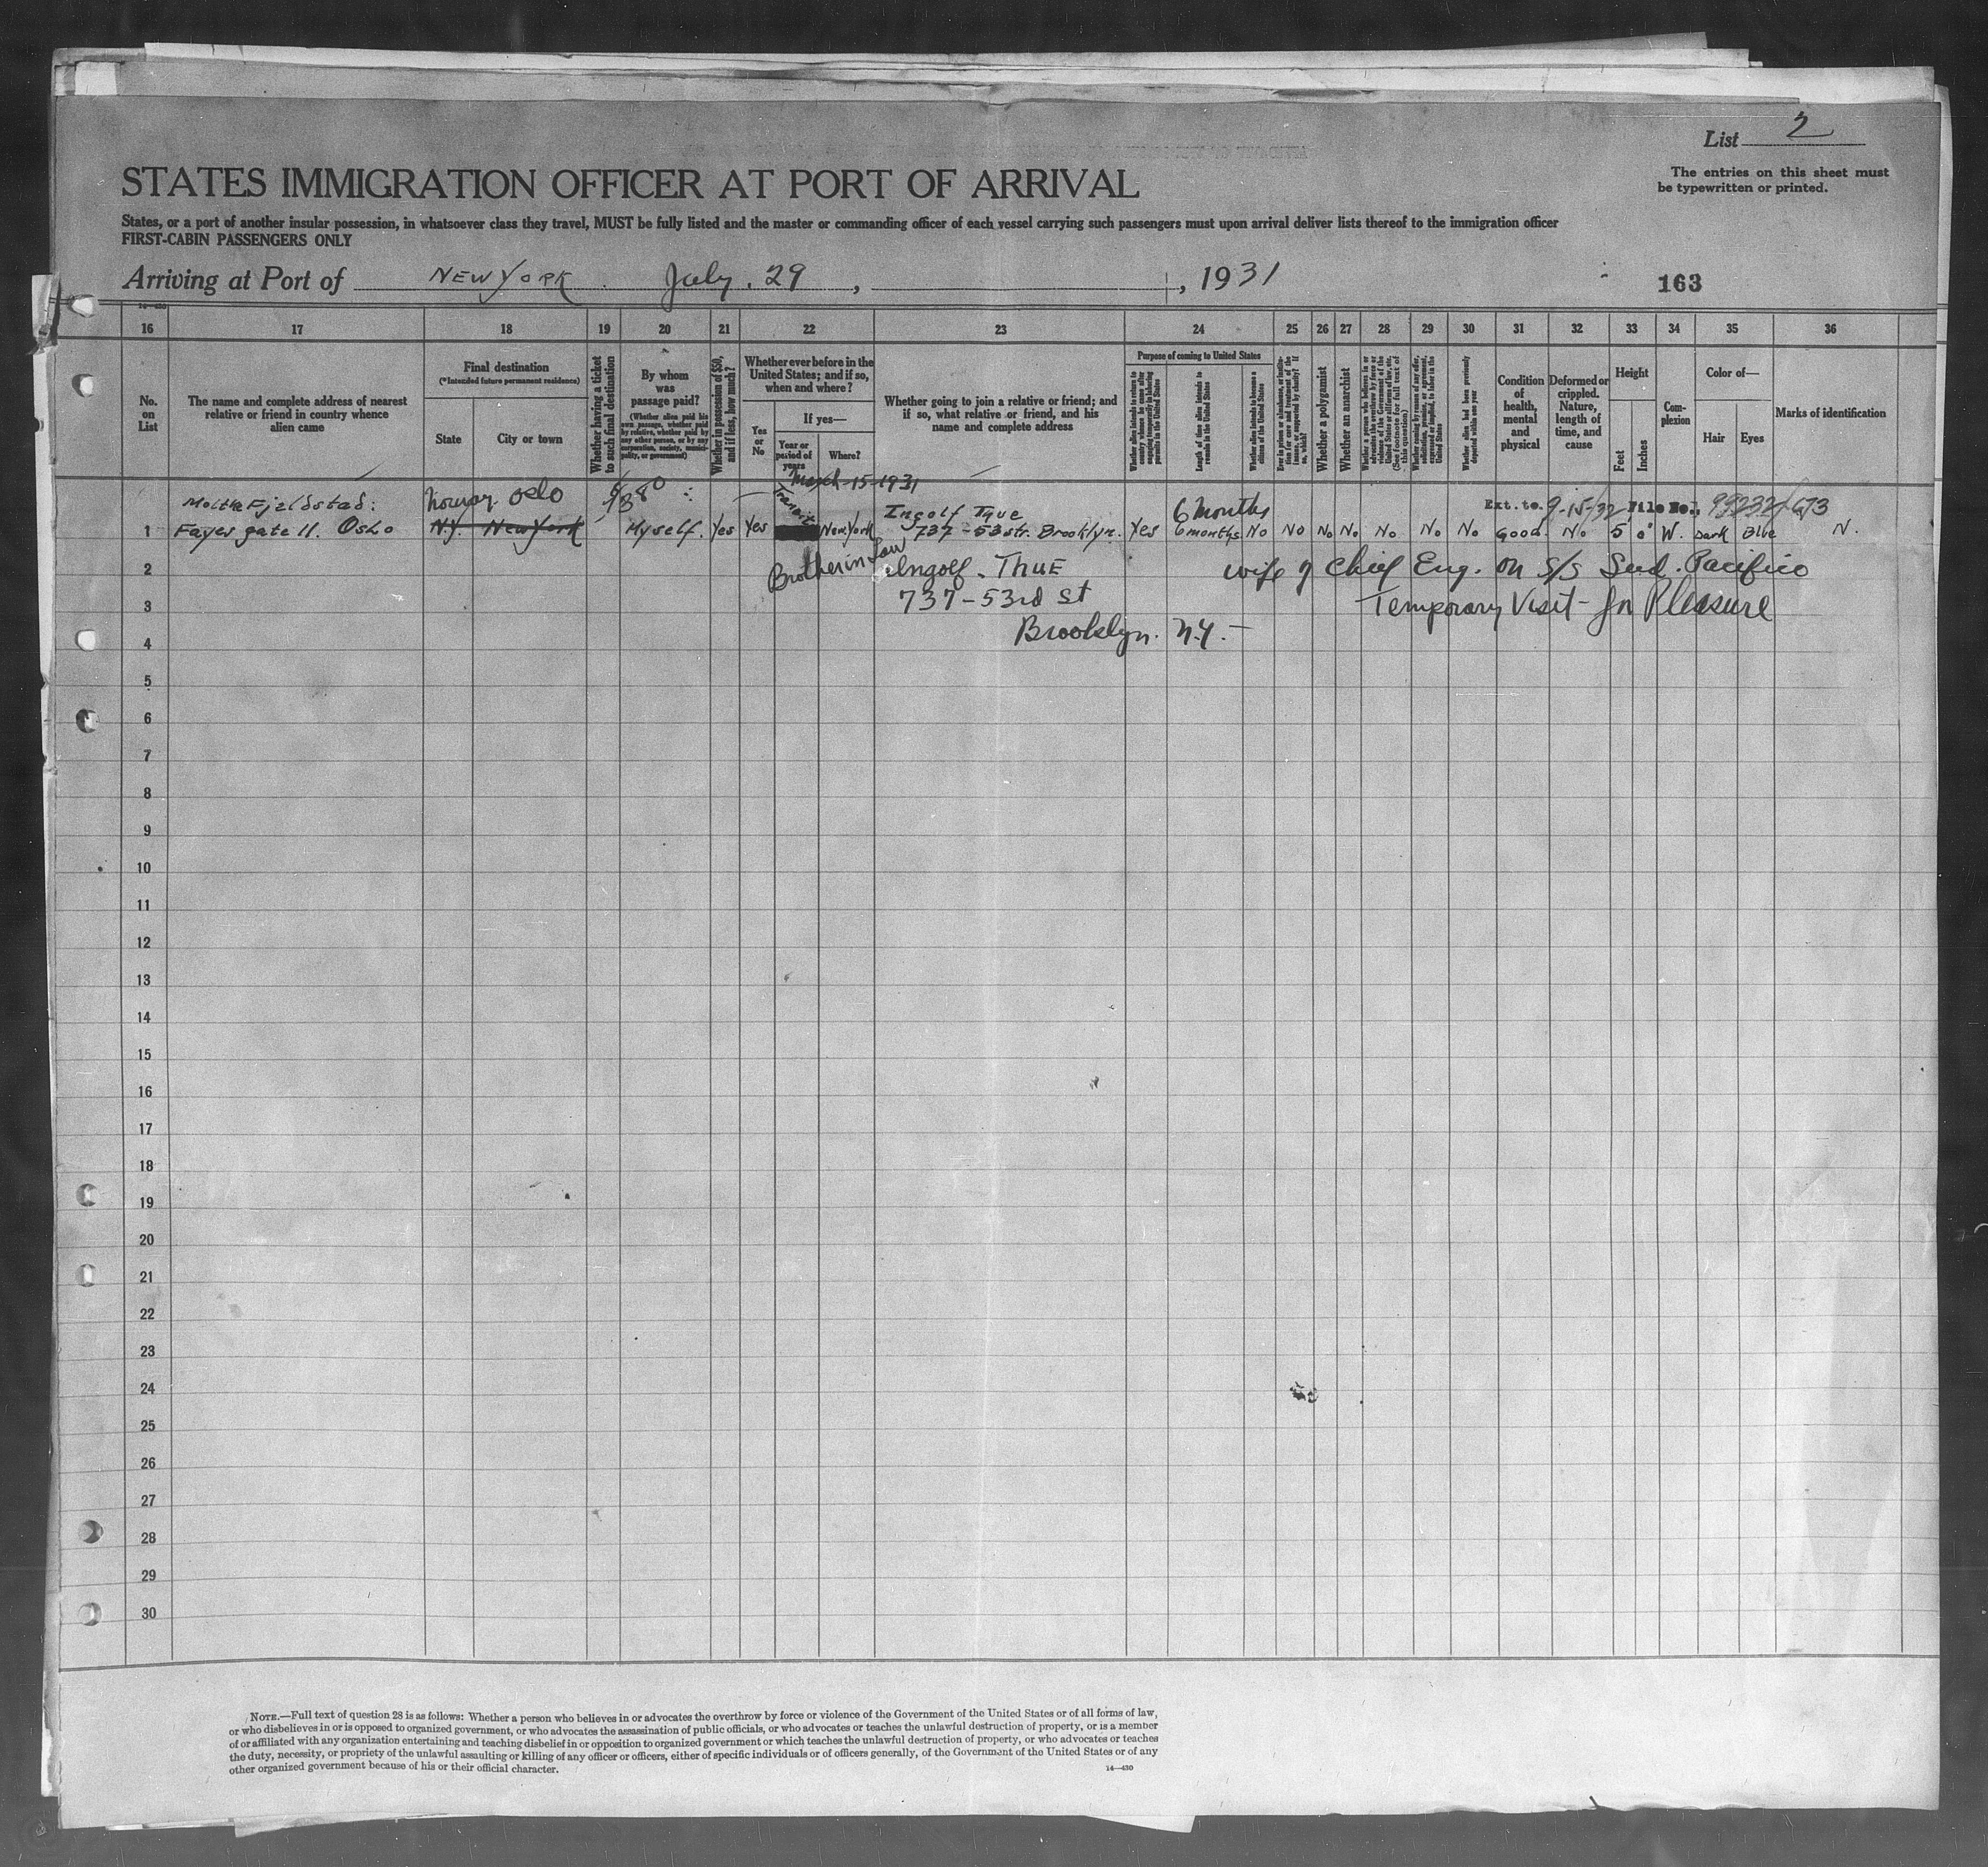 List 2
The entries on this sheet must
be typewritten or printed.
STATES IMMIGRATION OFFICER AT PORT OF ARRIVAL
States, or a port of another insular possession, in whatsoever class they travel, MUST be fully listed and the master or commanding officer of each vessel carrying such passengers must upon arrival deliver lists thereof to the immigration officer
FIRST-CABIN PASSENGERS ONLY
Arriving at Port of NEW YORK July. 29, , 1931
163
16 17 18 19 20 21 22 23 24 25 26 27 28 29 30 31 32 33 34 35 36
No. on List
The name and complete address of nearest relative or friend in country whence alien came
Final destination
(*Intended future permanent residence)
State
City or town
Whether having a ticket to such final destination
By whom was passage paid?
(Whether alien paid his own passage, whether paid by relative, whether paid by any other person, or by any corporation, society, municipality, or government)
Whether in possession of $50, and if less, how much?
Whether ever before in the United States; and if so, when and where?
Yes or No
If yes—
Year or period of years
Where?
Whether going to join a relative or friend; and if so, what relative or friend, and his name and complete address
Purpose of coming to United States
Length of time alien intends to remain in the United States
Whether alien intends to become a citizen of the United States
Whether a polygamist
Whether an anarchist
Whether alien had been previously deported within one year
Condition of health, mental and physical
Deformed or crippled. Nature, length of time, and cause
Height
Feet
Inches
Complexion
Color of—
Hair
Eyes
Marks of identification
March-15-1931
Molthe Fjeldstad: Norway Oslo Transit Ingolf Tque 6 months Ext. to. 9-15-32 File No. 99232/673
1 Fayes gate 11. Oslo N.Y. New York Myself. Yes Yes New York 737-53 str. Brooklyn. Yes 6 months No No No No No No No Good. No 5 W. Dark Blue N.
2 Brother in Law Ingolf. THUE wife of Chief Eng. on S/S Sud. Pacifico
3 737-53rd St Temporary Visit - for Pleasure
4 Brooklyn. N.Y.-
5
6
7
8
9
10
11
12
13
14
15
16
17
18
19
20
21
22
23
24
25
26
27
28
29
30
NOTE.—Full text of question 28 is as follows: Whether a person who believes in or advocates the overthrow by force or violence of the Government of the United States or of all forms of law,
or who disbelieves in or is opposed to organized government, or who advocates the assassination of public officials, or who advocates or teaches the unlawful destruction of property, or is a member
of or affiliated with any organization entertaining and teaching disbelief in or opposition to organized government or which teaches the unlawful destruction of property, or who advocates or teaches
the duty, necessity, or propriety of the unlawful assaulting or killing of any officer or officers, either of specific individuals or of officers generally, of the Government of the United States or of any
other organized government because of his or their official character.
14—430